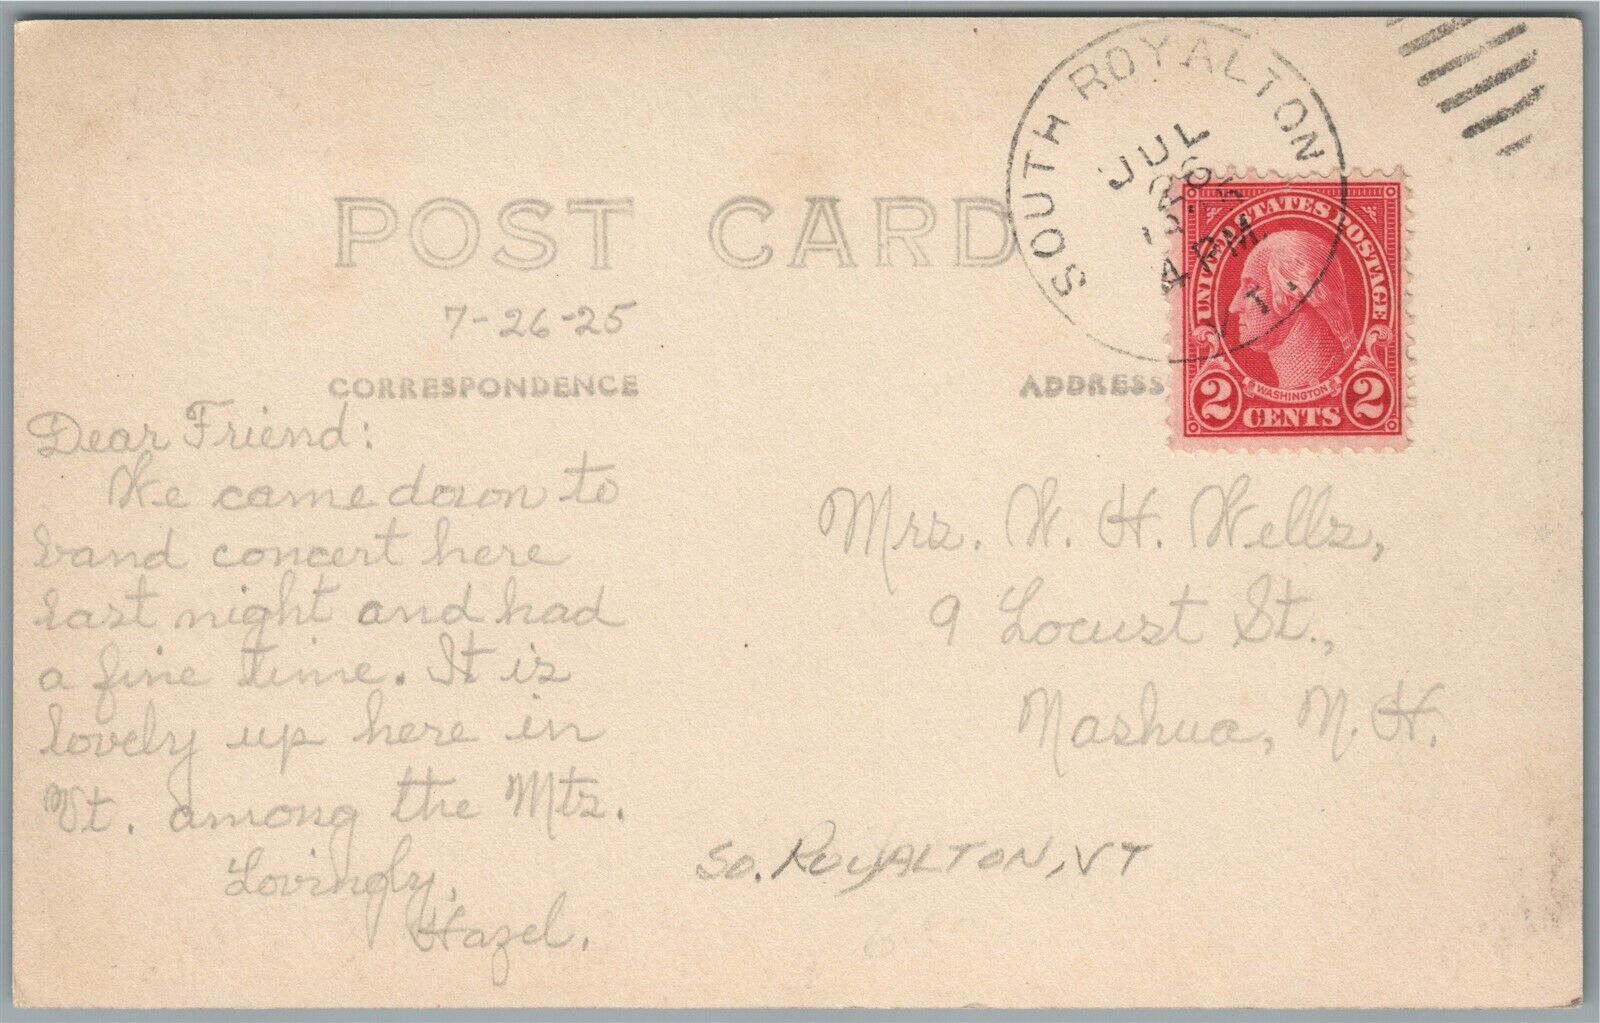 POST CARD
7-26-25
CORRESPONDENCE
Dear Friend:
We came down to
band concert here
last night and had
a fine time. It is
lovely up here in
Vt. among the Mts.
Lovingly,
Hazel.
SOUTH ROYALTON
VT.
JUL
26
4 PM
UNITED STATES POSTAGE
WASHINGTON
2 CENTS 2
ADDRESS
Mrs. W. H. Wells,
9 Locust St.,
Nashua, N. H.
SO. ROYALTON, VT